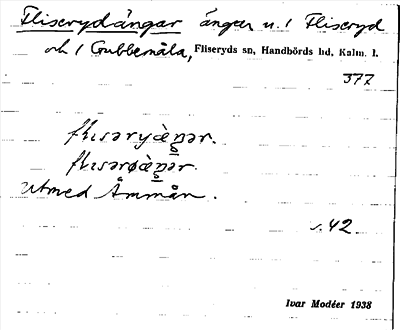 Fliserydängar ängar u. 1 Fliseryd
och 1 Gubbemåla, Fliseryds sn, Handbörds hd, Kalm. l.
377
flɩsəryὰŋər.
flɩsərøὰŋər.
utmed Åmmån.
s. 42
Ivar Modéer 1938